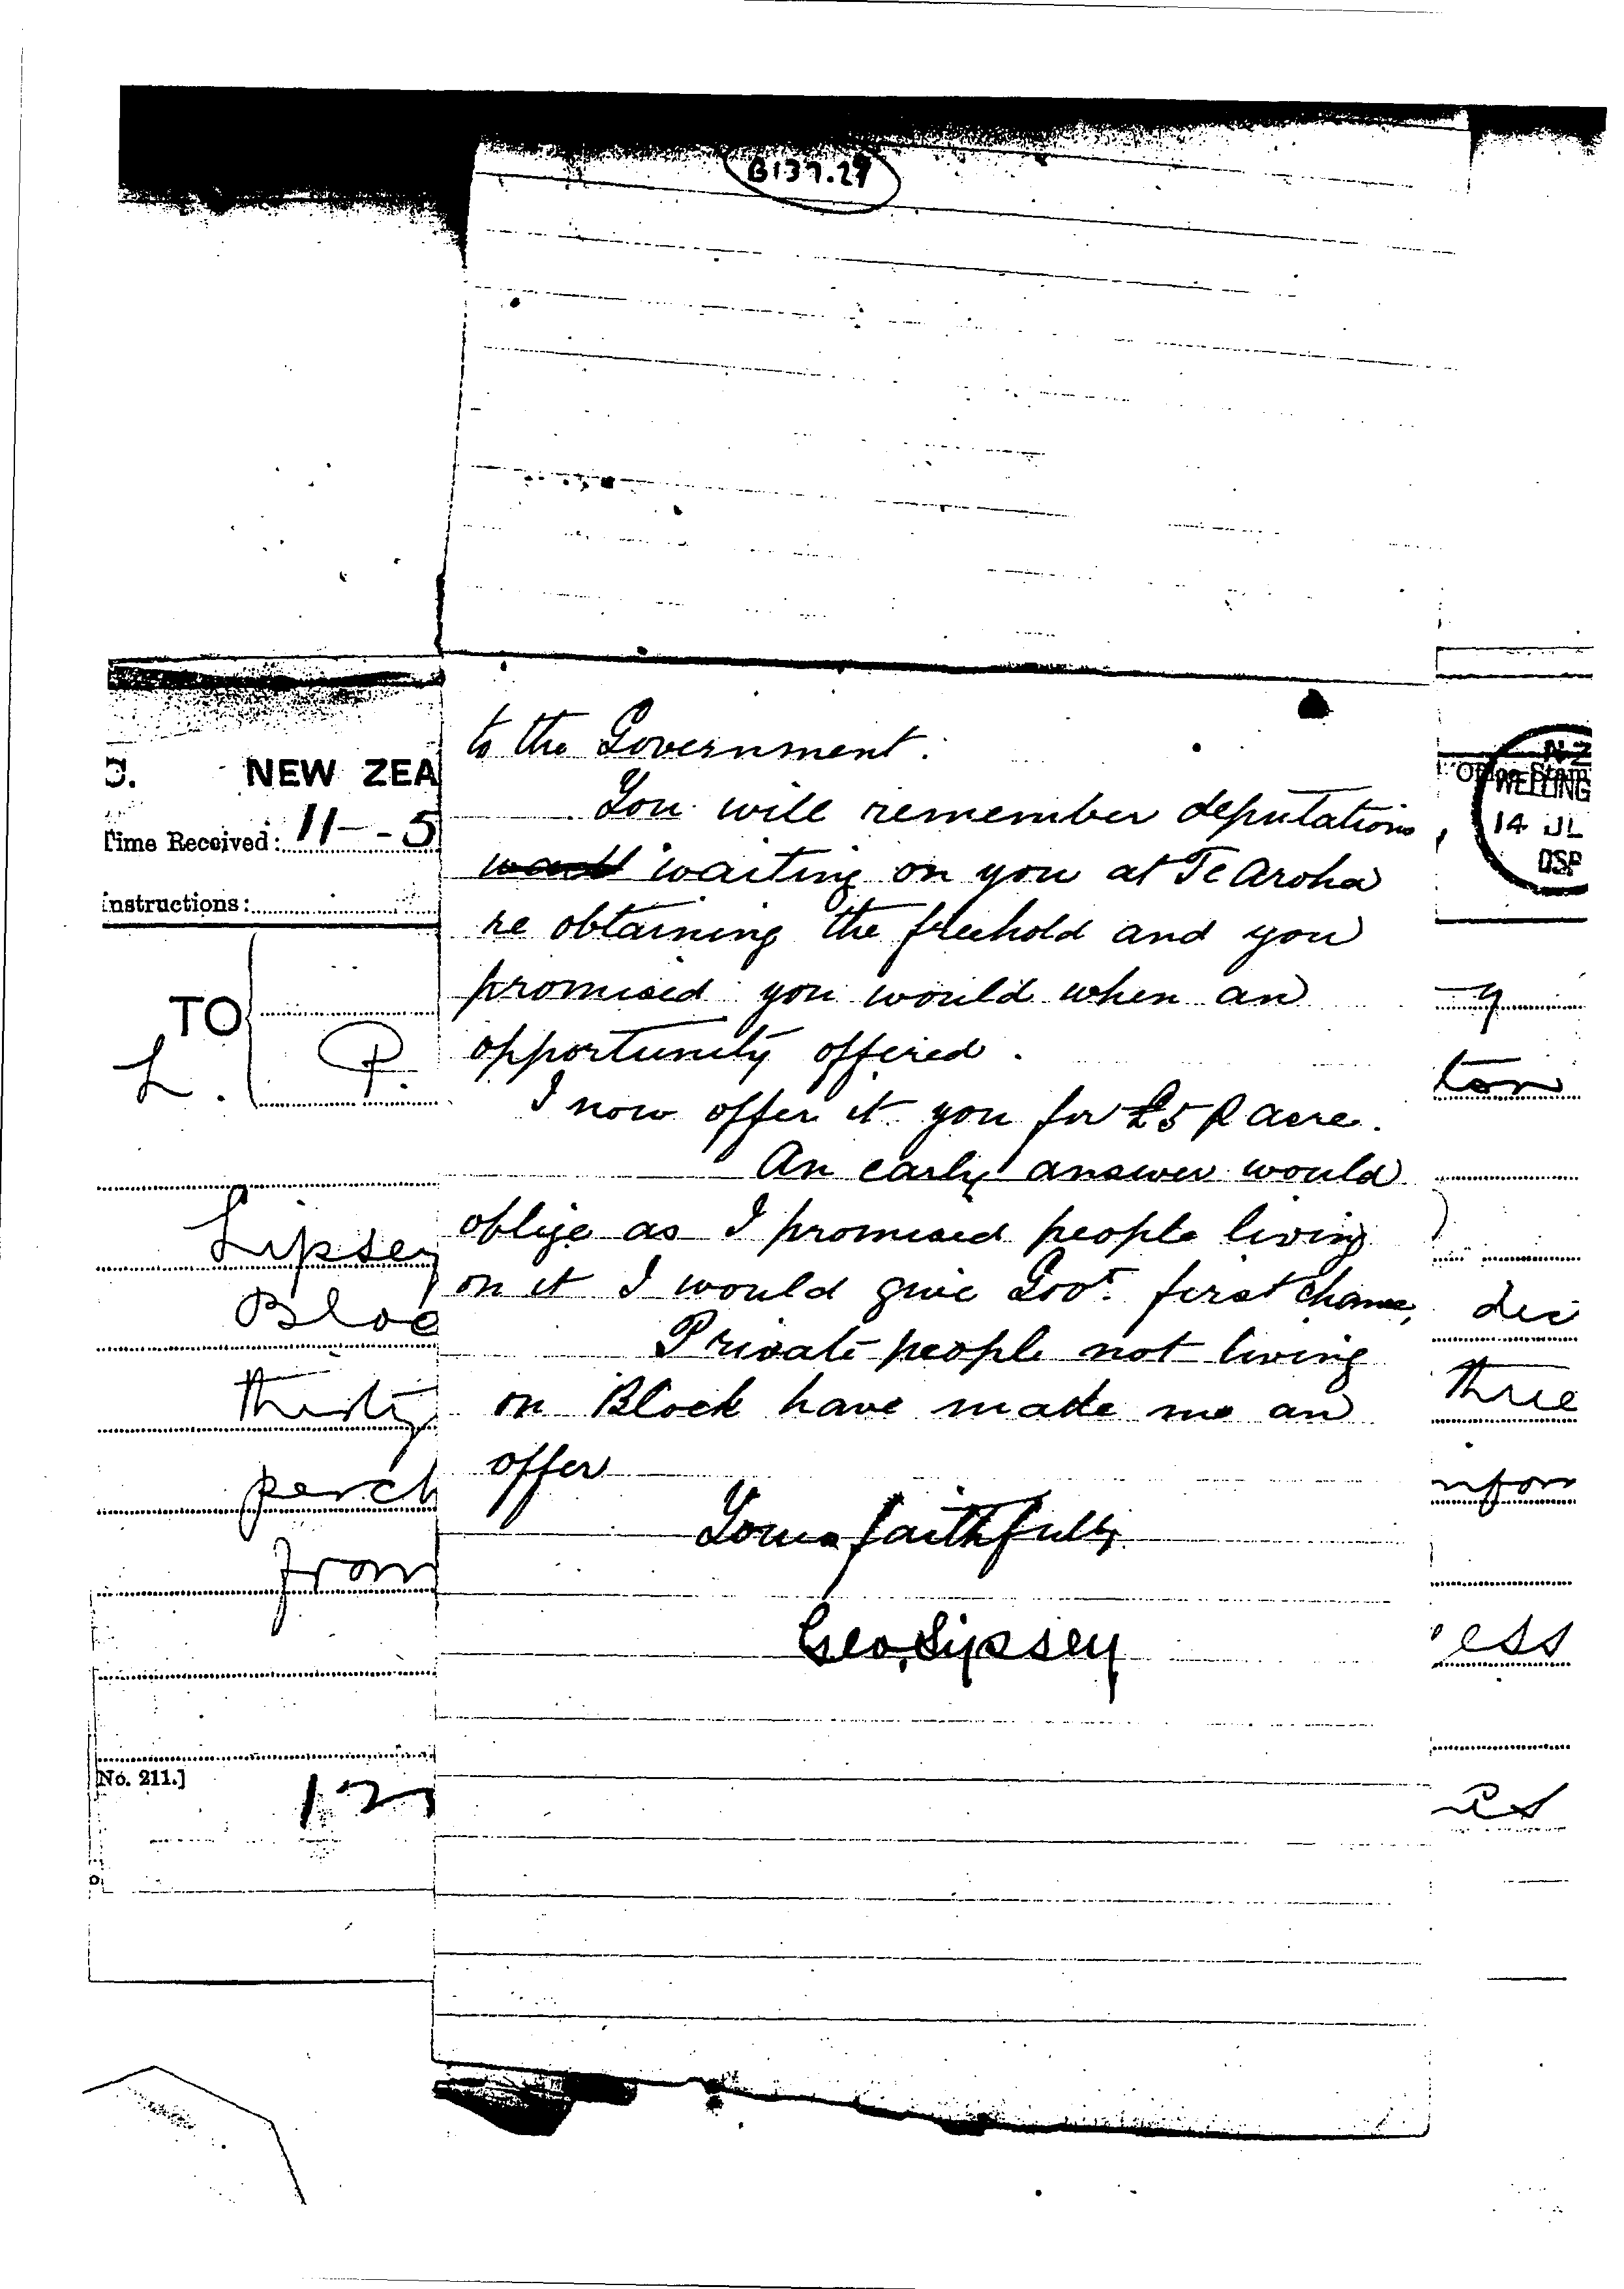 B137.29
to the Government.
You will remember deputation
waiting on you at Te Aroha
re obtaining the freehold and you
promised you would when an
opportunity offered.
I now offer it you for £5 P acre.
An early answer would
oblige as I promised people living
on it I would give Govt. first chance,
Private people not living
on Block have made me an
offer
Yours faithfully
Geo. Lipsey
NEW ZEA
Time Received: 11 - 5
Instructions:
TO
L. P.
Lipsey
Bloc
thirty
perch
from
No. 211.]
12
N Z
Office Stam
WELLING
14 JL
OSP
y
ton
dec
three
ess